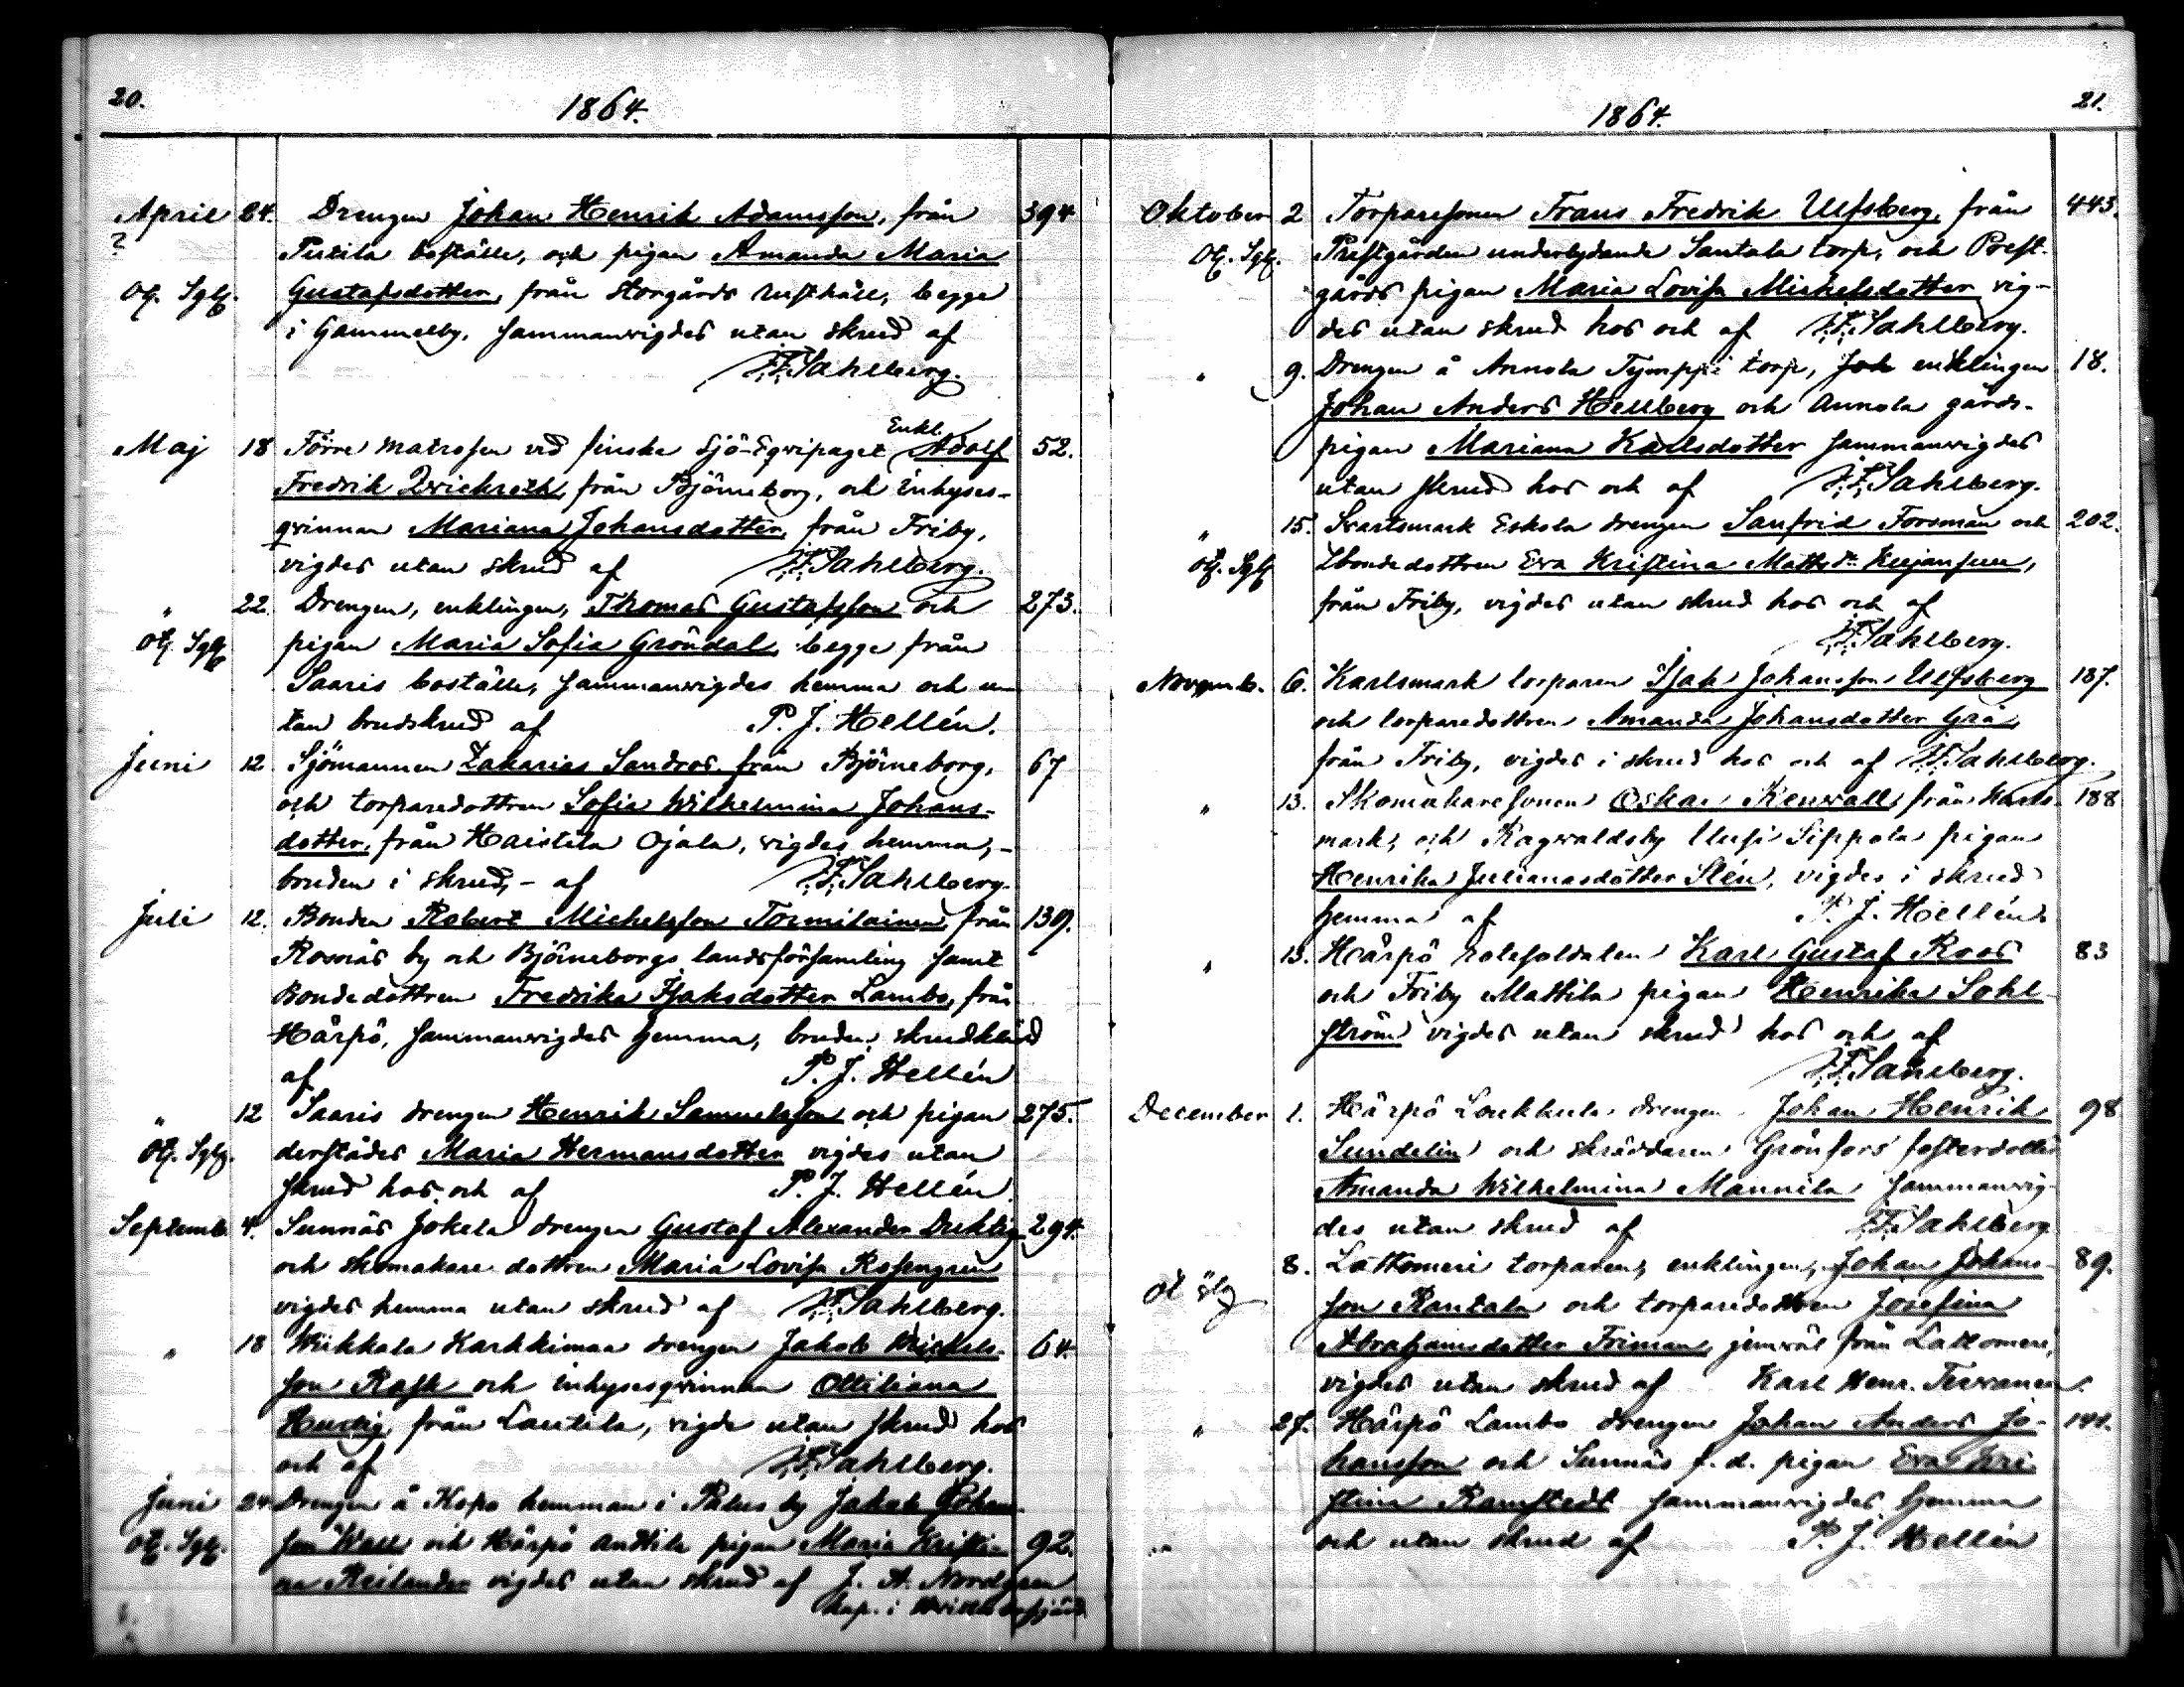 20.
1864.
April 24. Drengen Johan Henrik Adamsson, från 394
?
boställe, och pigan Amanda Maria
Gustafsdotter, från Storgårds rusthåll, begge
i Gammelby, sammanvigdes utan skrud af
F. Sahlberg.
Enkl.
Maj 18 Förre matrosen vid finska Sjö-Eqvipaget Adolf 52.
Fredrik från Björneborg, och Inhyses-
qvinnan Mariana Johansdotter, från Friby,
vigdes utan skrud af F. Sahlberg.
" 22. Drengen, enklingen, Thomas Gustafsson och 273.
pigan Maria Sofia Gröndal, begge från
Saaris boställe, sammanvigdes hemma och u-
tan brudskrud af P. J. Hellén.
Juni 12 Sjömannen Zakarias Sandros från Björneborg, 67
och torparedottren Sofia Wilhelmina Johans-
dotter, från Haistila Ojala, vigdes hemma, -
bruden i skrud, - af F. Sahlberg.
Juli 12. Bonden Robert Michelsson Tormilainen, från 139.
Rosnäs by och Björneborgs landsförsamling samt
Bondedottren Fredrika Isaksdotter Lambo, från
Hårpö, sammanvigdes hemma, bruden skrudkläd
af P. J. Hellén
" 12 Saaris drengen Henrik Samuelsson och pigan 275.
derstädes Maria Hermansdotter vigdes utan
skrud hos och af P. J. Hellén.
Septemb. 4. Sunnäs Jokela drengen Gustaf Alexander Duktig 294.
och skomakare dottren Maria Lovisa Rosengren
vigdes hemma utan skrud af F. Sahlberg.
" 18 Wikkala Karhkimaa drengen Jakob Michels- 64.
son Rask och inhysesqvinnan Ottiliana
från Lautila, vigde utan skrud hos
och af F. Sahlberg.
Juni 24 Drengen å Kopo hemman i by Jakob Johans-
son Wall och Hårpö Anttila pigan Maria Kristi- 92.
na Reilander vigdes utan skrud af J. A. Nordgren
kap. i
1864.
21.
Oktober 2 Torparesonen Frans Fredrik Ulfsberg, från 443.
Prestgården underlydande Santala torp, och Prest-
gårds pigan Maria Lovisa Michelsdotter vig-
des utan skrud hos och af F. Sahlberg.
" 9. Drengen å Annola Tymppi torp, enklingen 18.
Johan Anders Hellberg och Annola gårds-
pigan Mariana Karlsdotter sammanvigdes
utan skrud hos och af F. Sahlberg.
" 15. Svartsmark Eskola drengen Sanfrid Forsman och 202.
bondedottren Eva Kristina Mattsdr Kujansuu,
från Friby, vigdes utan skrud hos och af
F. Sahlberg.
Novemb. 6. Karlsmark torparen Isak Johansson Ulfsberg 187.
och torparedottren Amanda Johansdotter Grå,
från Friby, vigdes i skrud hos och af F. Sahlberg.
" 13. Skomakaresonen Oskar Renvall, från Karls- 188
mark, och Ragwaldsby Uusi Sippola pigan
Henrika Julianasdotter Slén, vigdes i skrud
hemma af P. J. Hellén.
" 13. Hårpö rotesoldaten Karl Gustaf Roos 83
och Friby Mattila pigan Henrika Sohl-
ström vigdes utan skrud hos och af
F. Sahlberg.
December 1. Hårpö Loukkula drengen Johan Henrik 98
Sundelin och skräddaren Grönfors fosterdotter
Amanda Wilhelmina Mannila sammanvig-
des utan skrud af F. Sahlberg
8. Lattomeri torparen, enklingen, Johan Johans- 89.
son Rantala och torparedottren Josefina
Abrahamsdotter Friman, jemväl från Lattomeri,
vigdes utan skrud af Karl Henr. Terranen.
" 27. Hårpö Lambo drengen Johan Anders Jo-
hansson och Sunnäs f.d. pigan Eva Kri
stina Ramstedt sammanvigdes hemma
och utan skrud af P. J. Hellén